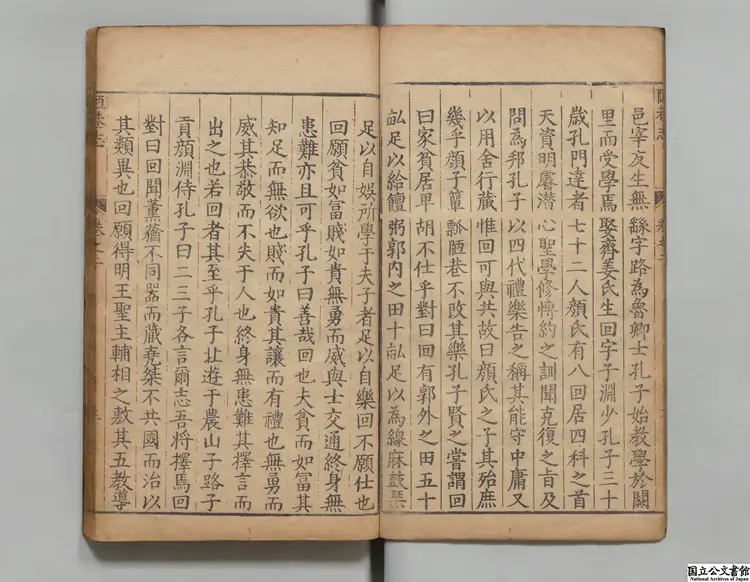 邑宰友生無繇字路為魯卿士孔子始教學於闕
里而受學焉娶齊姜氏生回字子淵少孔子三十
歲孔門達者七十二人顏氏有八回居四科之首
天資明睿潜心聖學修愽約之訓聞克復之旨及
問為邦孔子以四代禮樂告之稱其能守中庸又
以用舍行蔵惟回可與共故曰顏氏之子其殆庶
幾乎顏子簞瓢陋巷不改其樂孔子賢之嘗謂回
曰家貧居卑胡不仕乎對曰回有郭外之田五十
畝足以給饘粥郭內之田十畝足以為線麻鼓琴
足以自娛所學于夫子者足以自樂回不願仕也
回願貧如富賤如貴無勇而威與士交通終身無
患難亦且可乎孔子曰善哉回也夫貧而如富其
知足而無欲也賤而如貴其讓而有禮也無勇而
威其恭敬而不失于人也終身無患難其擇言而
出之也若回者其至乎孔子北遊于農山子路子
貢顏淵侍孔子曰二三子各言爾志吾將擇焉回
對曰回聞薰蕕不同器而藏堯桀不共國而治以
其類異也回願得明王聖主輔相之敷其五教導
陋巷志
卷之二
国立公文書館
National Archives of Japan